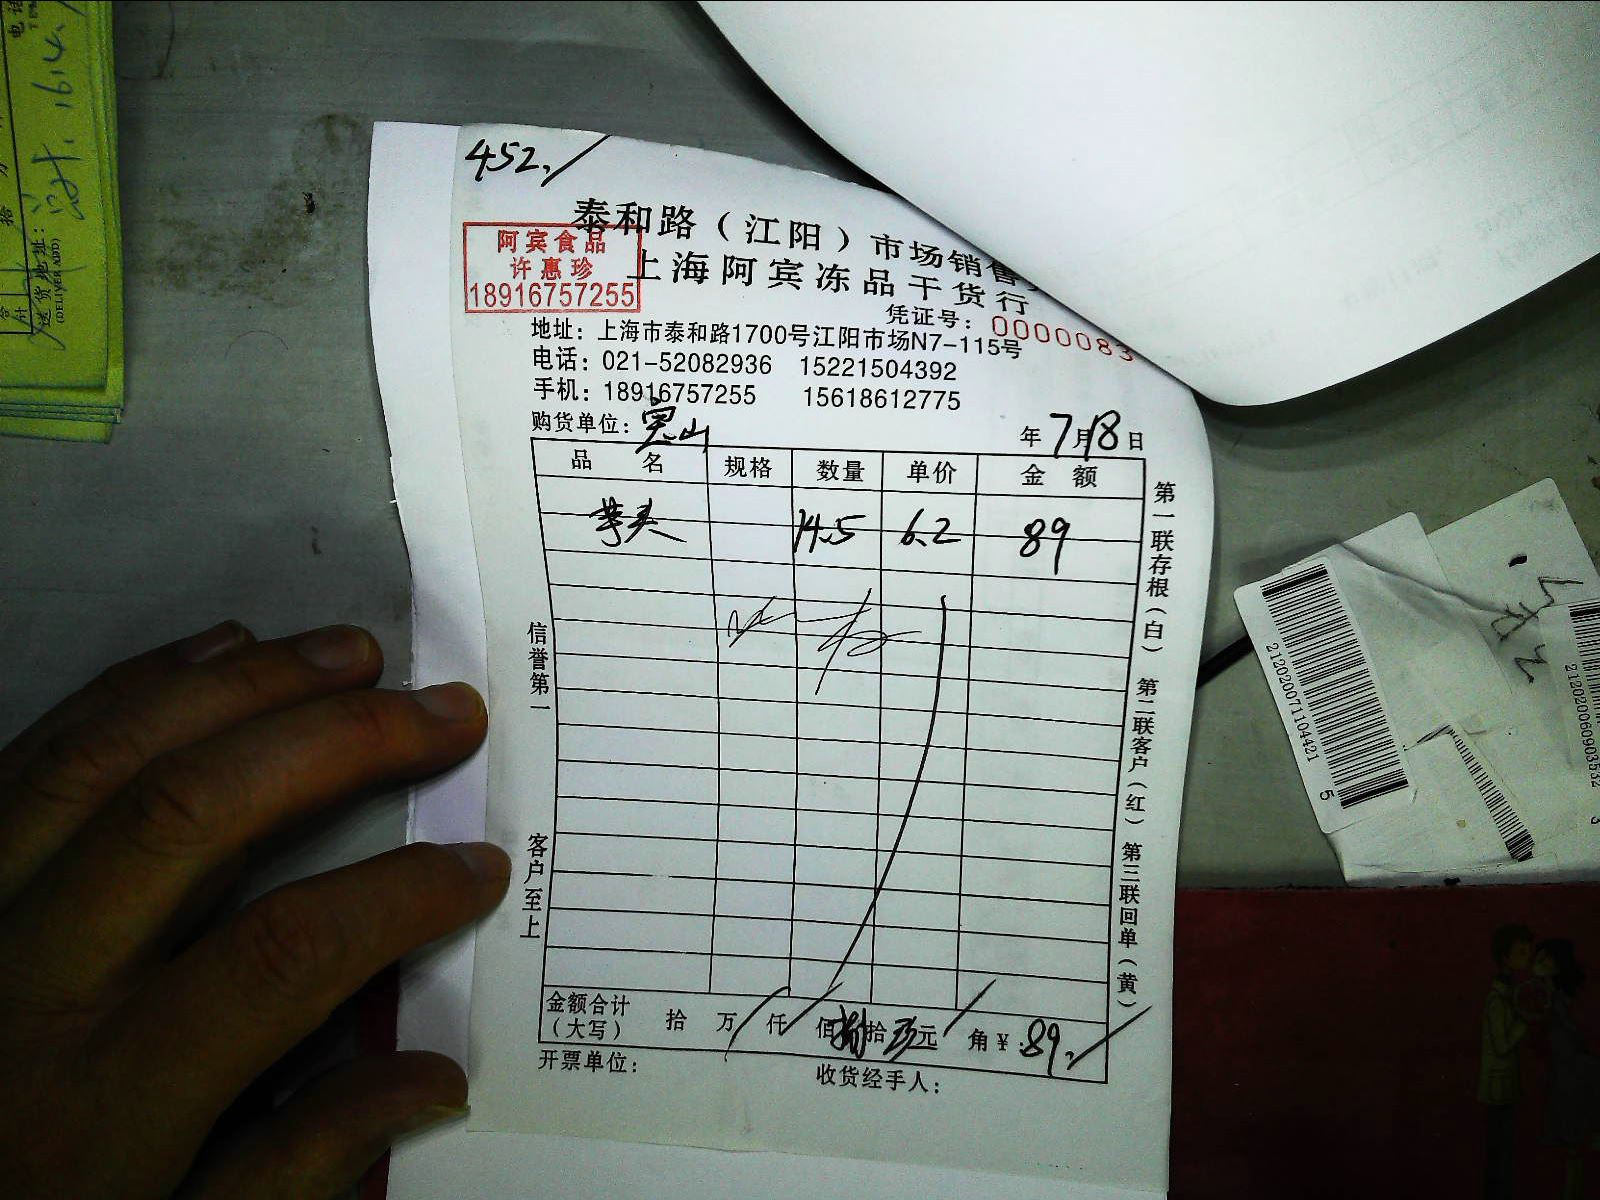 452.
泰和路（江阳）市场销售
上海阿宾冻品干货行
阿宾食品
许惠珍
18916757255
凭证号：0000083
地址：上海市泰和路1700号江阳市场N7-115号
电话：021-52082936 15221504392
手机：18916757255 15618612775
购货单位：宝山
年7月18日
品名 规格 数量 单价 金额
芋头 14.5 6.2 89
信誉第一
客户至上
第一联存根（白） 第二联客户（红） 第三联回单（黄）
金额合计
（大写） 拾 万 仟 佰 捌拾 元 角 ¥：89.
开票单位：
收货经手人：
送货地址：
(DELIVER ADD)
16.4.
212020071104421
5
212020060903532
3